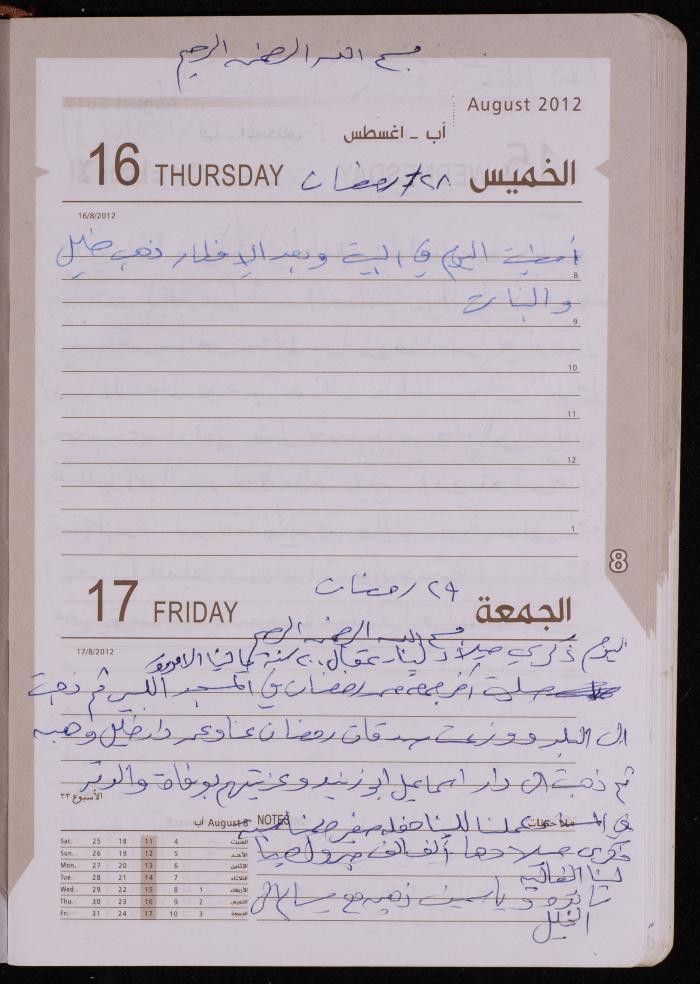 بسم الله الرحمن الرحيم
August 2012
أب - اغسطس
16 THURSDAY ٢٨ رمضان الخميس
16/8/2012
أمضيت اليوم في البيت وبعد الإفطار ذهب خليل
8
والبنات
9
10
11
12
1
8
٢٩ رمضان
17 FRIDAY الجمعة
بسم الله الرحمن الرحيم
17/8/2012
اليوم ذكرى ميلاد لينا ٢٠ سنة
صليت آخر جمعة من رمضان في المسجد الكبير ثم ذهبت
الى البلد ووزعت صدقات رمضان عنا وعن دار خليل وهبه
ثم ذهبت الى دار اسماعيل ابو زيد وعزيتهم بوفاة والدتهم
الأسبوع ٣٣
August 8 أب
NOTES ملاحظات
في المساء عملنا للينا حفلة صغيرة بمناسبة
ذكرى ميلادها ألف ألف مبروك حبيبتنا
لينا الغالية
وياسمين ذهبن مع الى
الخليل
Sat. 25 18 11 4 السبت
Sun. 26 19 12 5 الأحد
Mon. 27 20 13 6 الاثنين
Tue. 28 21 14 7 الثلاثاء
Wed. 29 22 15 8 1 الأربعاء
Thu. 30 23 16 9 2 الخميس
Fri. 31 24 17 10 3 الجمعة